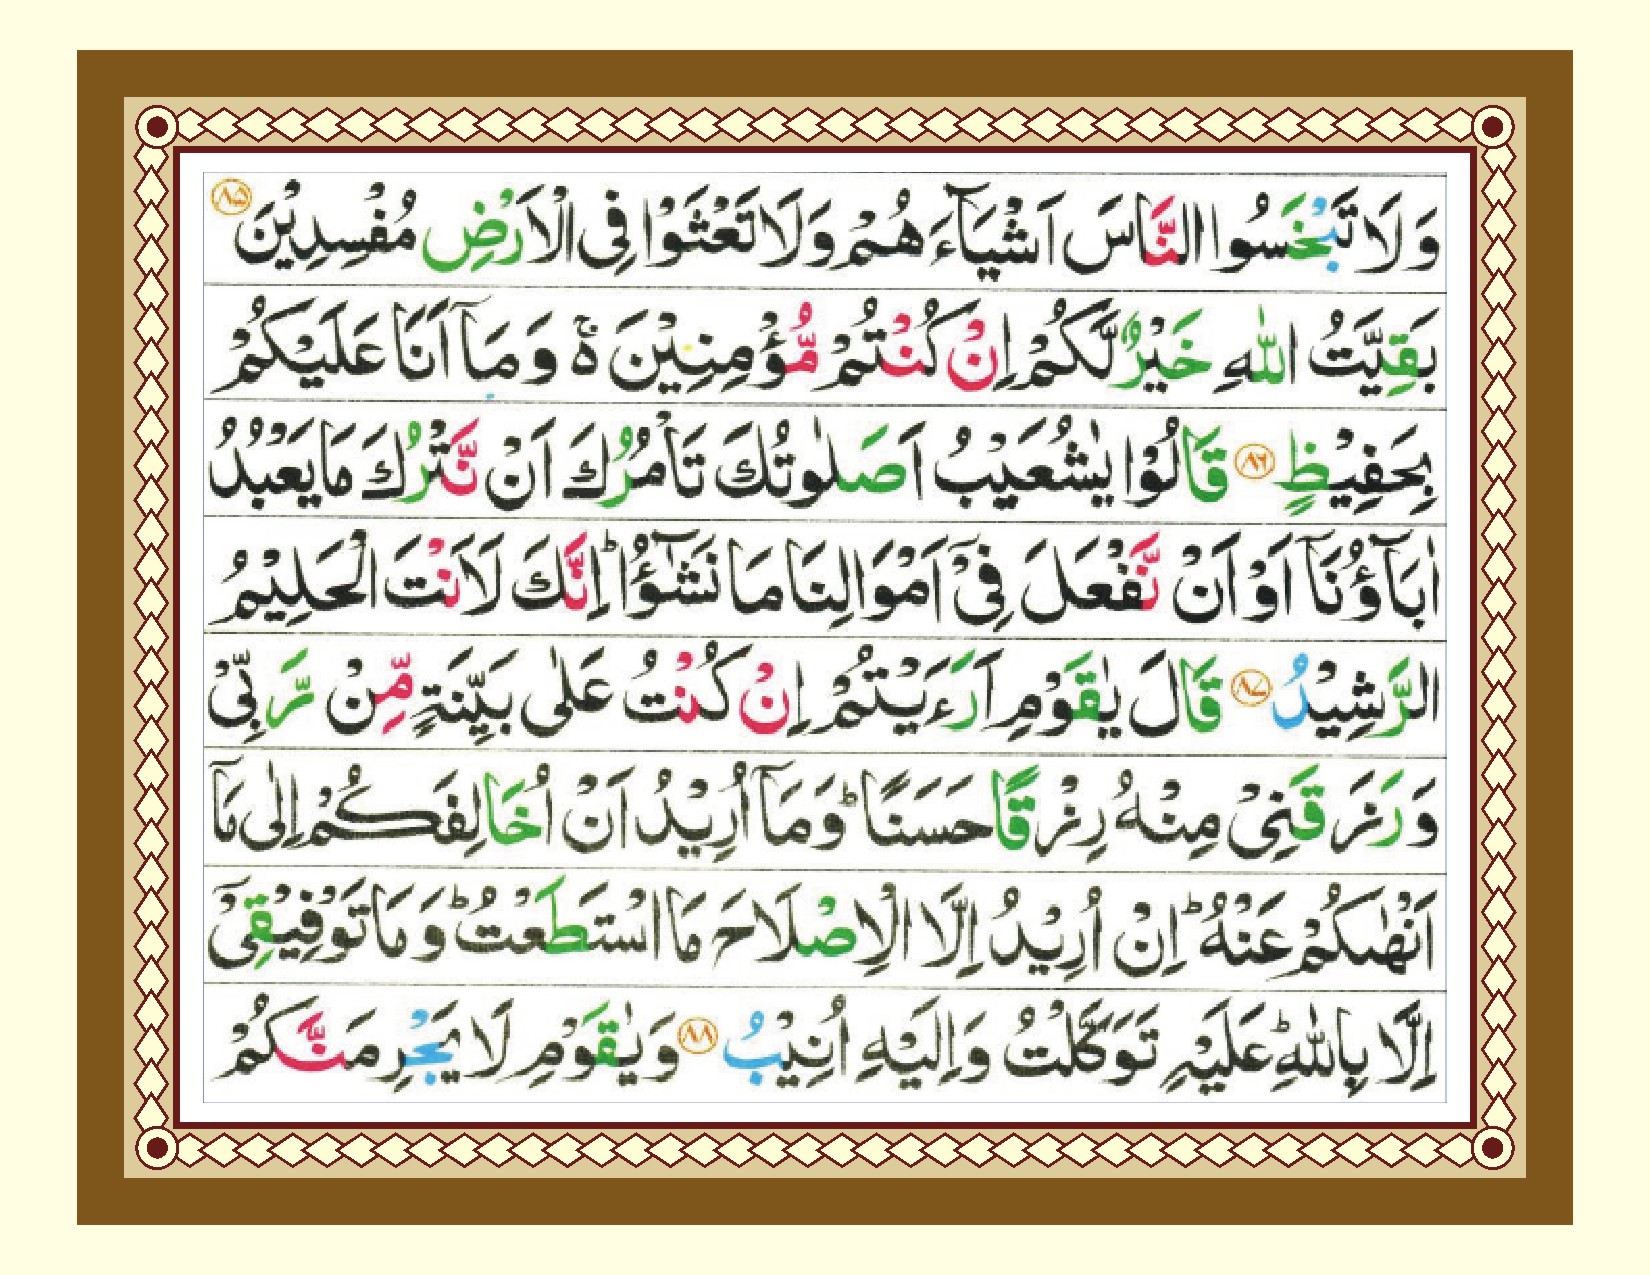 وَلَا تَبْخَسُوا النَّاسَ اَشْيَآءَهُمْ وَلَا تَعْثَوْا فِى الْاَرْضِ مُفْسِدِيْنَ ۸۵
بَقِيَّتُ اللّٰهِ خَيْرٌ لَّكُمْ اِنْ كُنْتُمْ مُّؤْمِنِيْنَ ەۚ وَمَآ اَنَا عَلَيْكُمْ
بِحَفِيْظٍ ۸۶ قَالُوْا يٰشُعَيْبُ اَصَلٰوتُكَ تَاْمُرُكَ اَنْ نَّتْرُكَ مَا يَعْبُدُ
اٰبَآؤُنَآ اَوْ اَنْ نَّفْعَلَ فِىْٓ اَمْوَالِنَا مَا نَشٰٓؤُا ؕ اِنَّكَ لَاَنْتَ الْحَلِيْمُ
الرَّشِيْدُ ۸۷ قَالَ يٰقَوْمِ اَرَءَيْتُمْ اِنْ كُنْتُ عَلٰى بَيِّنَةٍ مِّنْ رَّبِّىْ
وَرَزَقَنِىْ مِنْهُ رِزْقًا حَسَنًا ؕ وَمَآ اُرِيْدُ اَنْ اُخَالِفَكُمْ اِلٰى مَآ
اَنْهٰىكُمْ عَنْهُ ؕ اِنْ اُرِيْدُ اِلَّا الْاِصْلَاحَ مَا اسْتَطَعْتُ ؕ وَمَا تَوْفِيْقِىْٓ
اِلَّا بِاللّٰهِ ؕ عَلَيْهِ تَوَكَّلْتُ وَاِلَيْهِ اُنِيْبُ ۸۸ وَيٰقَوْمِ لَا يَجْرِمَنَّكُمْ